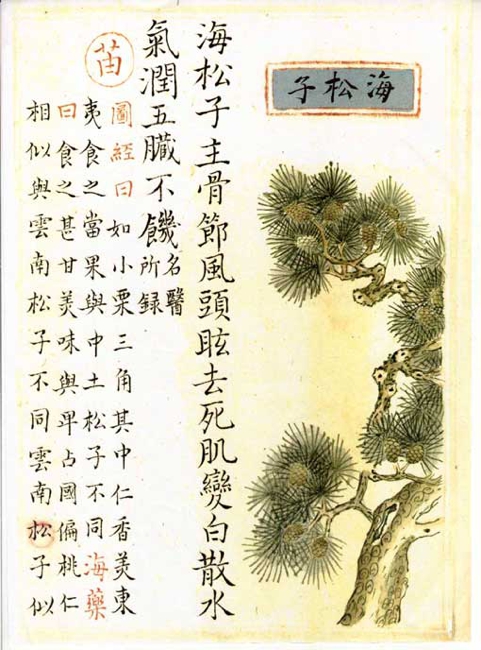 海松子
海松子主骨節風頭眩去死肌變白散水
氣潤五臟不饑名醫所録
苗
圖經曰如小栗三角其中仁香美東
夷食之當果與中土松子不同海藥
曰食之甚甘美味與卑占國偏桃仁
相似與雲南松子不同雲南松子似